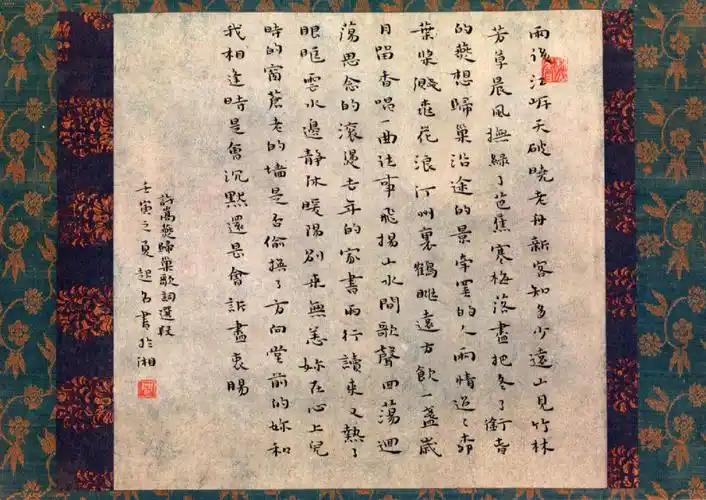 雨後江岍天破曉老舟新客知多少遠山見竹林
芳草晨風撫綠了芭蕉寒梅落盡把冬了銜旾
的燕想歸巢沿途的景牽罣的人兩情迢々
葉槳濺起花浪汀州裏鶴眺遠方飲一盞歲
月留香唱一曲往事飛揚山水間歌聲回蕩迴
蕩思念的滾燙去年的家書兩行讀來又熱了
眼眶雲水邊靜沐暖陽別來無恙妳在心上兒
時的窗蒼老的墻是否偷換了方向堂前的妳和
我相逢時是會沉默還是會訴盡衷腸
許嵩燕歸巢歌詞選段
壬寅之夏超名書於湘